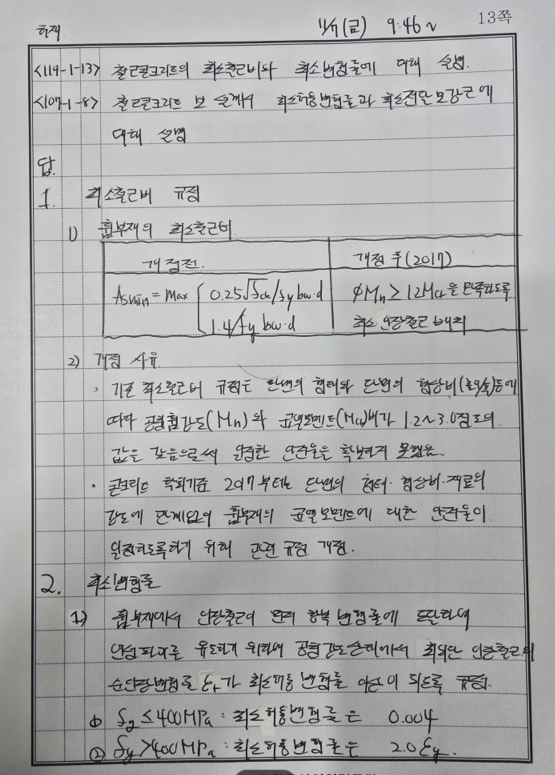 허재 11/7(금) 9:46~ 13쪽
<119-1-13> 철근콘크리트의 최소철근비와 최소변형률에 대해 설명.
<107-1-8> 철근콘크리트 보 설계시 최소허용변형률과 최소전단보강근에
대해 설명
답
1. 최소철근비 규정
1) 휨부재의 최소철근비
개정전. 개정 후(2017)
Asmin = Max { 0.25√fck/fy bw·d φMn ≥ 1.2Mcr을 만족하도록
1.4/fy bw·d 최소 인장철근 배치
2) 개정 사유
· 기존 최소철근비 규정은 단면의 형태와 단면의 형상비 등에
따라 공칭휨강도(Mn)와 균열모멘트(Mcr)비가 1.2~3.0정도의
값을 갖음으로써 일정한 안전율을 확보하지 못했음.
· 콘크리트 학회기준 2017부터는 단면의 형태·형상비·재료의
강도에 관계없이 휨부재의 균열모멘트에 대한 안전율이
일정하도록하기 위해 관련 규정 개정.
2. 최소변형률
1) 휨부재에서 인장철근이 먼저 항복 변형률에 도달하여
연성파괴를 유도하기 위하여 공칭강도상태에서 최외단 인장철근의
순인장변형률 εt가 최소허용 변형률 이상이 되도록 규정.
① fy ≤ 400MPa : 최소허용변형률은 0.004
② fy > 400MPa : 최소허용변형률은 2.0εy.